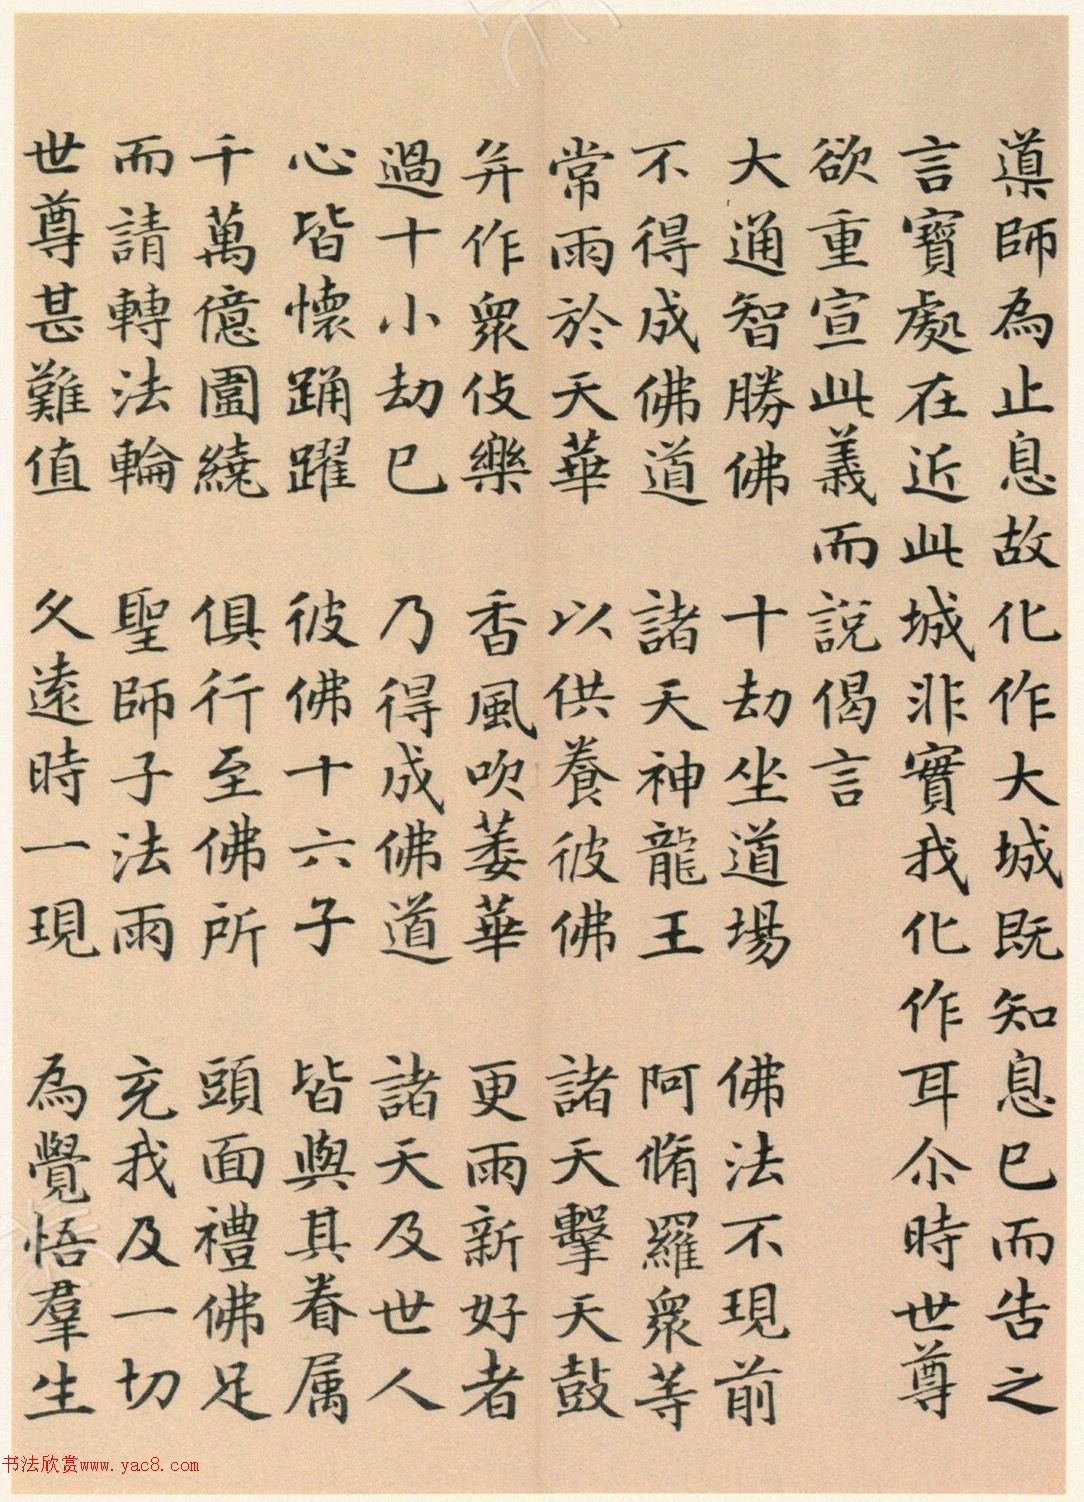 導師為止息故化作大城既知息已而告之
言寶處在近此城非實我化作耳尒時世尊
欲重宣此義而說偈言
大通智勝佛 十劫坐道場 佛法不現前
不得成佛道 諸天神龍王 阿脩羅衆等
常雨於天華 以供養彼佛 諸天擊天鼓
并作衆伎樂 香風吹萎華 更雨新好者
過十小劫已 乃得成佛道 諸天及世人
心皆懷踊躍 彼佛十六子 皆與其眷属
千萬億圍繞 俱行至佛所 頭面禮佛足
而請轉法輪 聖師子法雨 充我及一切
世尊甚難值 久遠時一現 為覺悟羣生
书法欣赏www.yac8.com